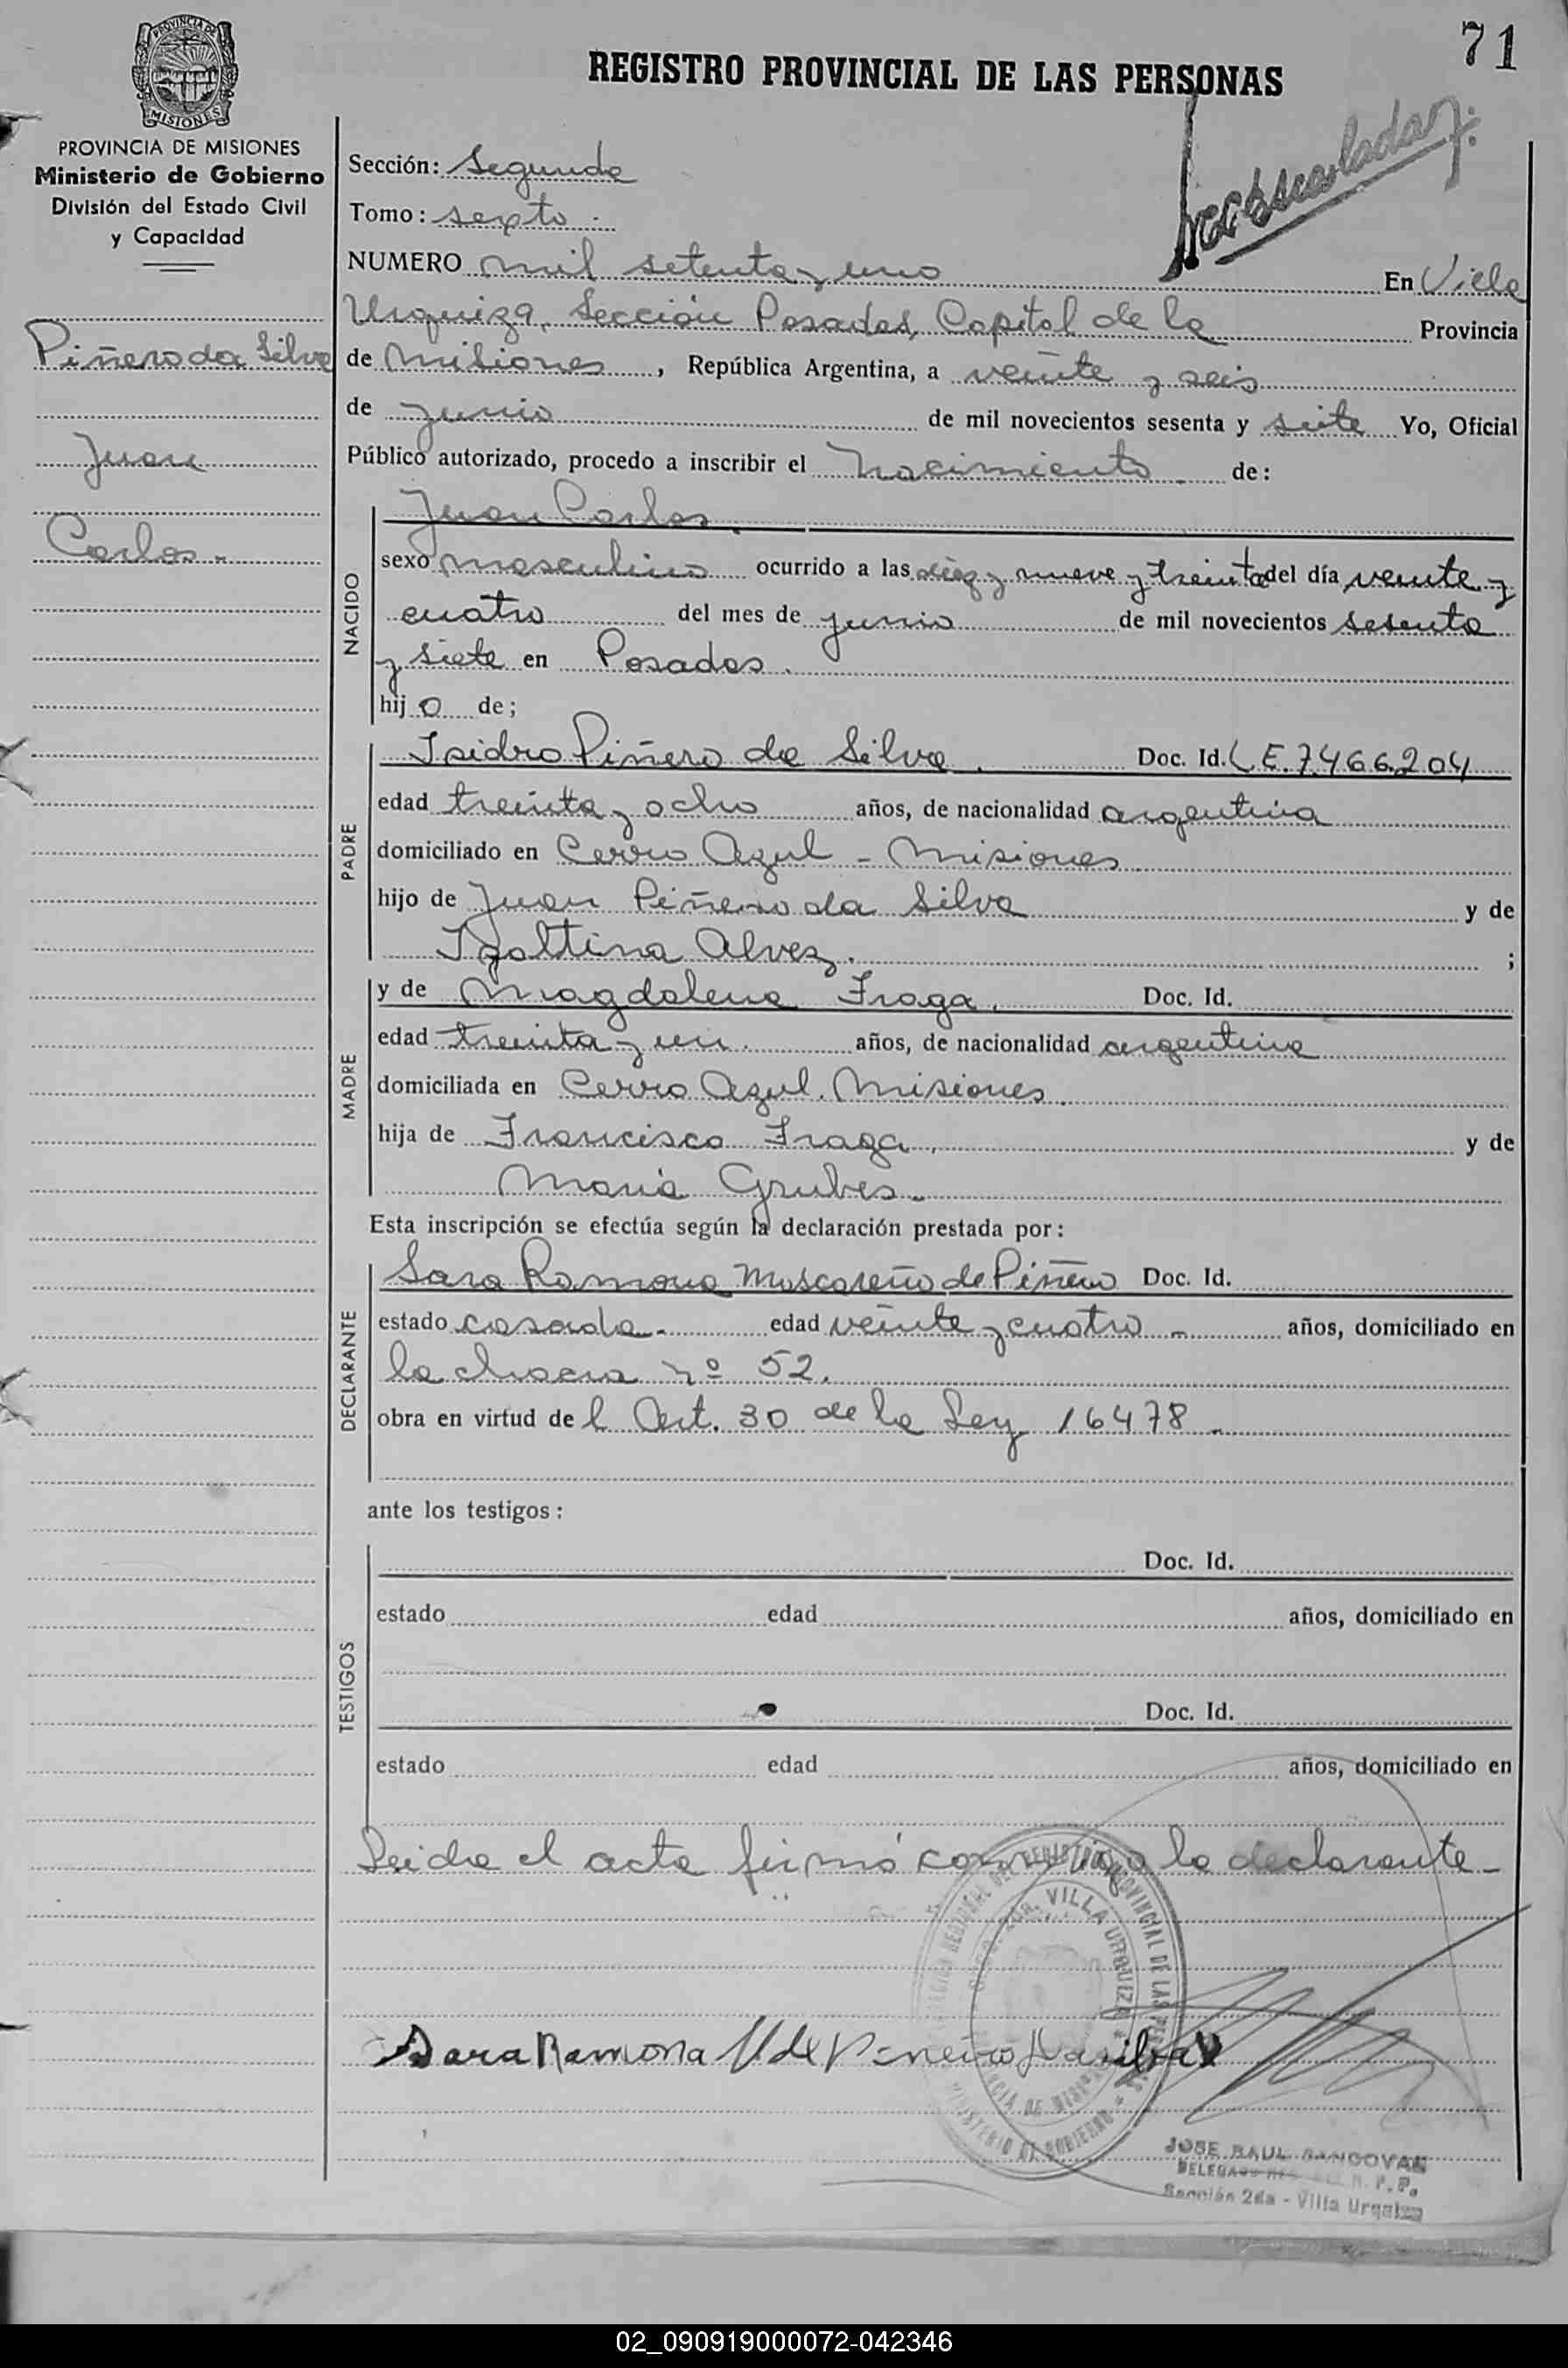 71
REGISTRO PROVINCIAL DE LAS PERSONAS
MISIONES
PROVINCIA DE MISIONES
Ministerio de Gobierno
División del Estado Civil
y Capacidad
Piñero da Silva
Juan
Carlos.-
Sección: Segunda
Tomo: sexto.
NUMERO mil setenta y uno En Villa
Urquiza, Sección Posadas, Capital de la Provincia
de Misiones, República Argentina, a veinte y seis
de junio de mil novecientos sesenta y siete Yo, Oficial
Público autorizado, procedo a inscribir el nacimiento de:
NACIDO
Juan Carlos.
sexo masculino ocurrido a las diez y nueve y treinta del día veinte y
cuatro del mes de junio de mil novecientos sesenta
y siete en Posadas.
hijo de;
PADRE
Isidro Piñero da Silva. Doc. Id. L E. 7.466.204
edad treinta y ocho años, de nacionalidad argentina
domiciliado en Cerro Azul - Misiones
hijo de Juan Piñero da Silva y de
Isoltina Alvez. ;
MADRE
y de Magdalena Fraga. Doc. Id.
edad treinta y un. años, de nacionalidad argentina
domiciliada en Cerro Azul. Misiones.
hija de Francisco Fraga, y de
Maria Grubes.
Esta inscripción se efectúa según la declaración prestada por:
DECLARANTE
Sara Ramona Moscareño de Piñero Doc. Id.
estado casada.- edad veinte y cuatro - años, domiciliado en
la chacra nº 52.
obra en virtud del Art. 30 de la Ley 16478.
ante los testigos:
TESTIGOS
Doc. Id.
estado edad años, domiciliado en
Doc. Id.
estado edad años, domiciliado en
Leida el acta firmó conmigo la declarante-
VILLA URQUIZA
MINISTERIO DE GOBIERNO
Sara Ramona M de Piñeiro Dasilva
JOSE RAUL SANDOVAL
Sección 2da - Villa Urquiza
02_090919000072-042346